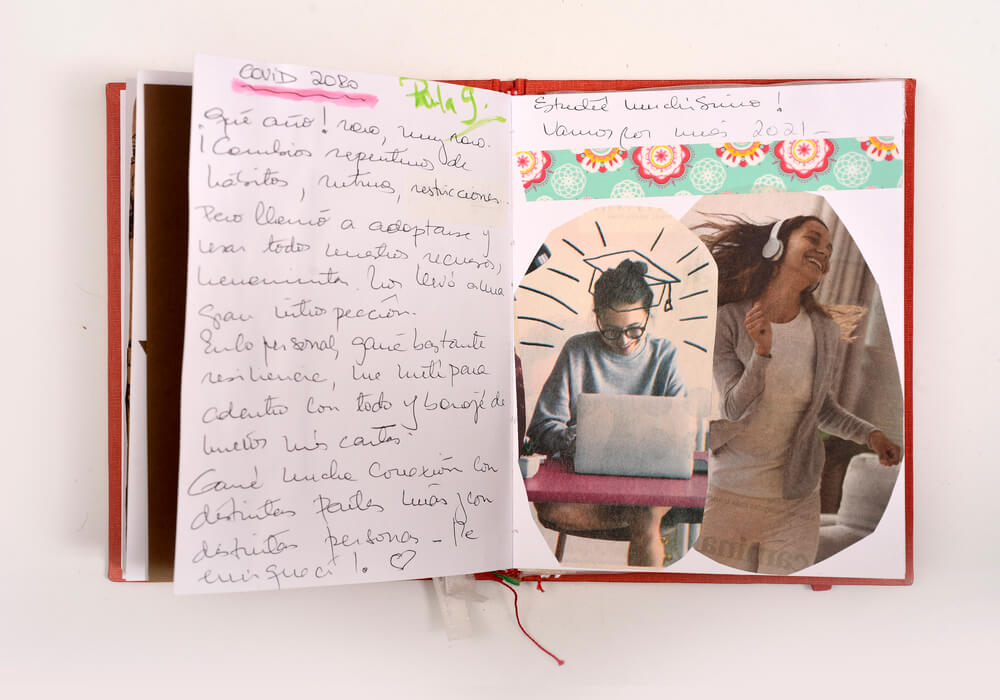 COVID 2020
Paula G.
¡Qué año! raro, muy raro.
¡Cambios repentinos de
hábitos, rutina, restricciones..
Pero llamó a adaptarse y
usar todos nuestros recursos,
herramientas. Nos llevó a una
gran introspección.
En lo personal, gané bastante
resiliencia, me metí para
adentro con todo y barajé de
nuevo mis cartas.
Gané mucha conexión con
distintas partes mías, con
distintas personas - Me
enriquecí!. ♡
Estudié muchísimo!
Vamos por más 2021-